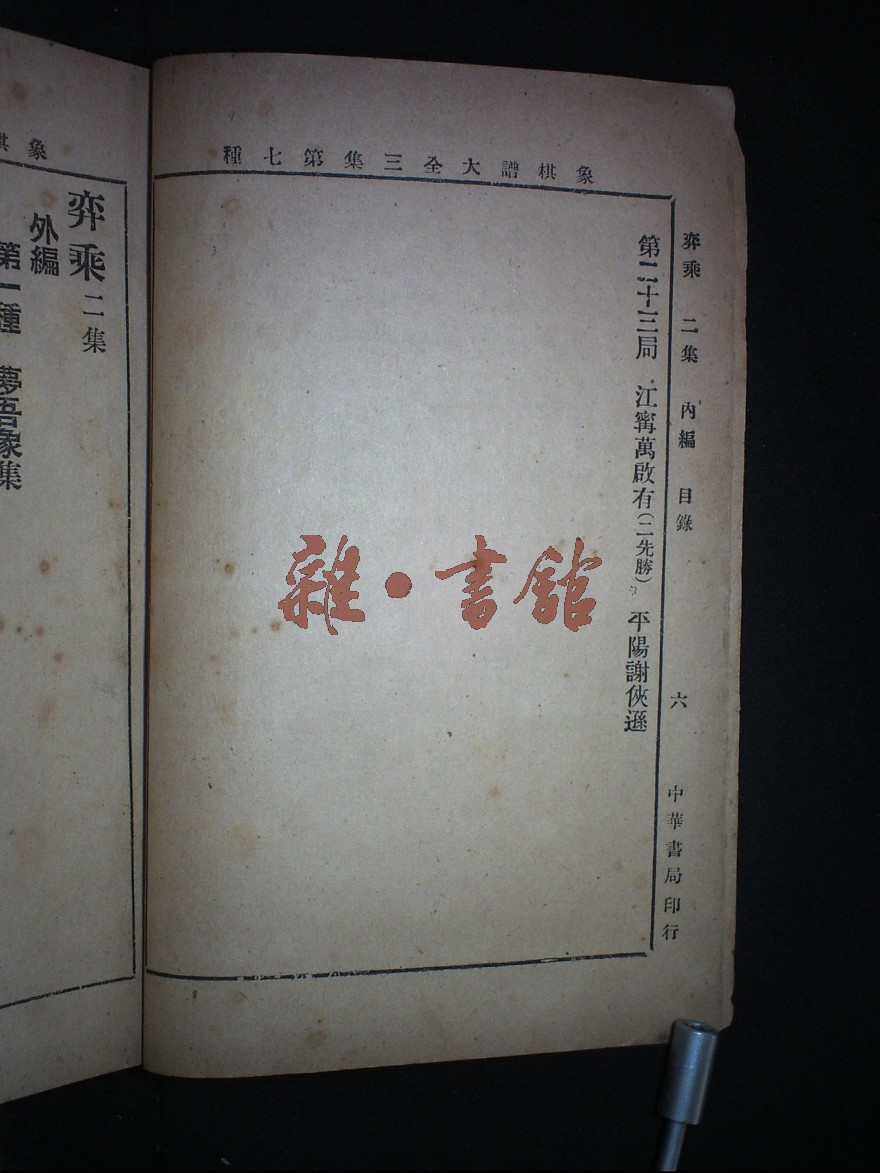 象棋譜大全三集第七種
弈乘　二集　內編　目錄　六　中華書局印行
第二十三局　江寗萬啟有（二先勝）　平陽謝俠遜
雜・書館
象棋
弈乘二集
外編
第一種　夢吾象集